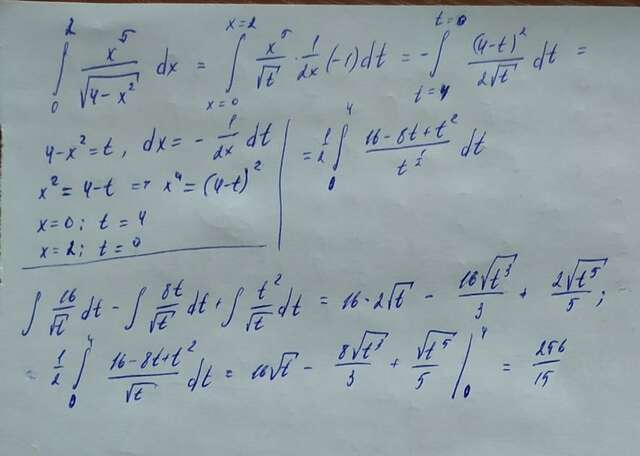 ∫₀² x⁵/√(4-x²) dx = ∫_{x=0}^{x=2} x⁵/√t · 1/2x (-1)dt = -∫_{t=4}^{t=0} (4-t)²/2√t dt =
4-x²=t, dx = - 1/2x dt
x²=4-t => x⁴=(4-t)²
x=0; t=4
x=2; t=0
= 1/2 ∫₀⁴ (16-8t+t²)/t^{1/2} dt
∫ 16/√t dt - ∫ 8t/√t dt + ∫ t²/√t dt = 16·2√t - 16√t³/3 + 2√t⁵/5;
= 1/2 ∫₀⁴ (16-8t+t²)/√t dt = 16√t - 8√t³/3 + √t⁵/5 |₀⁴ = 256/15